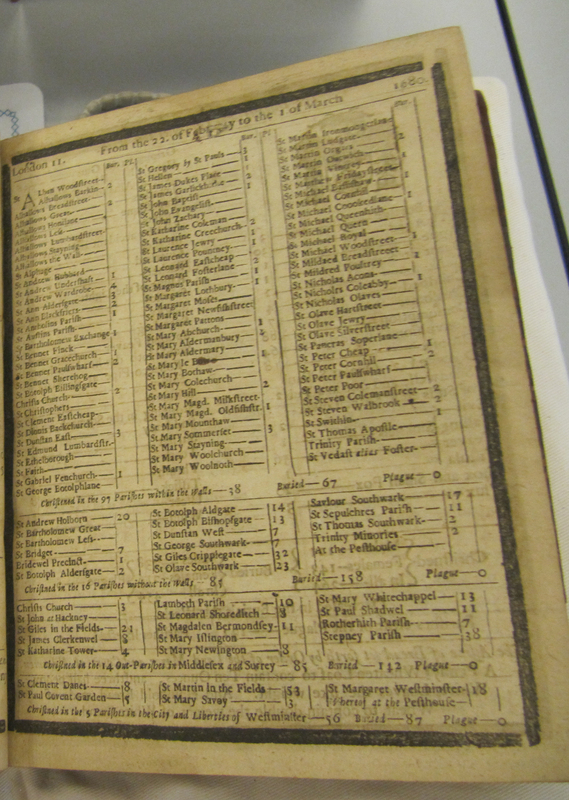 London 11. From the 22. of February to the 1 of March 1680.
Bur. Pl.
St Alban Woodstreet
Alhallows Barkin 2
Alhallows Breadstreet
Alhallows Great 2
Alhallows Honilane
Alhallows Less
Alhallows Lumbardstreet
Alhallows Stayning
Alhallows the Wall
St Alphage
St Andrew Hubbard
St Andrew Undershaft 1
St Andrew Wardrobe 4
St Ann Aldersgate 3
St Ann Blackfriers 2
St Antholins Parish 1
St Austins Parish
St Bartholomew Exchange 1
St Bennet Finck
St Bennet Gracechurch 1
St Bennet Paulswharf 2
St Bennet Sherehog
St Botolph Billingsgate
Christs Church 2
St Christophers
St Clement Eastcheap
St Dionis Backchurch
St Dunstan East 3
St Edmund Lumbardstr.
St Ethelborough
St Faith
St Gabriel Fenchurch 1
St George Botolphlane
Bur. Pl.
St Gregory by St Pauls 3
St Hellen 1
St James Dukes Place
St James Garlickhithe 1
St John Baptist
St John Evangelist
St John Zachary
St Katharine Coleman 2
St Katharine Creechurch
St Laurence Jewry 1
St Laurence Pountney
St Leonard Eastcheap 2
St Leonard Fosterlane 1
St Magnus Parish 1
St Margaret Lothbury
St Margaret Moses
St Margaret Newfishstreet
St Margaret Pattons
St Mary Abchurch
St Mary Aldermanbury
St Mary Aldermary
St Mary le Bow
St Mary Bothaw
St Mary Colechurch
St Mary Hill 2
St Mary Magd. Milkstreet
St Mary Magd. Oldfishstr. 1
St Mary Mounthaw
St Mary Sommerset 3
St Mary Stayning
St Mary Woolchurch
St Mary Woolnoth
Bur.
St Martin Ironmongerlane
St Martin Ludgate
St Martin Orgars
St Martin Outwich
St Martin Vintrey
St Matthew Fridaystreet
St Michael Bassishaw
St Michael Cornhil
St Michael Crookedlane
St Michael Queenhith
St Michael Quern
St Michael Royal
St Michael Woodstreet
St Mildred Breadstreet
St Mildred Poultrey
St Nicholas Acons
St Nicholas Coleabby
St Nicholas Olaves
St Olave Hartstreet
St Olave Jewry
St Olave Silverstreet
St Pancras Soperlane
St Peter Cheap
St Peter Cornhil
St Peter Paulswharf
St Peter Poor
St Steven Colemanstreet 2
St Steven Walbrook
St Swithin
St Thomas Apostle
Trinity Parish
St Vedast alias Foster
Christned in the 97 Parishes within the Walls — 38 Buried — 67 Plague — 0
St Andrew Holborn 20
St Bartholomew Great
St Bartholomew Less
St Bridget 7
Bridewel Precinct 1
St Botolph Aldersgate 2
St Botolph Aldgate 14
St Botolph Bishopsgate 13
St Dunstan West 7
St George Southwark 7
St Giles Cripplegate 32
St Olave Southwark 23
Saviour Southwark 17
St Sepulchres Parish 11
St Thomas Southwark 2
Trinity Minories 2
At the Pesthouse
Christned in the 16 Parishes without the Walls — 85 Buried — 158 Plague — 0
Christs Church 3
St John at Hackney
St Giles in the Fields 21
St James Clerkenwel 8
St Katharine Tower 4
Lambeth Parish 10
St Leonard Shoreditch 8
St Magdalen Bermondsey 11
St Mary Islington
St Mary Newington 8
St Mary Whitechappel 13
St Paul Shadwel 11
Rotherhith Parish 7
Stepney Parish 38
Christned in the 14 Out-Parishes in Middlesex and Surrey — 85 Buried — 142 Plague — 0
St Clement Danes 8
St Paul Covent Garden 5
St Martin in the Fields 53
St Mary Savoy 3
St Margaret Westminster 18
whereof at the Pesthouse
Christned in the 5 Parishes in the City and Liberties of Westminster — 56 Buried — 87 Plague — 0